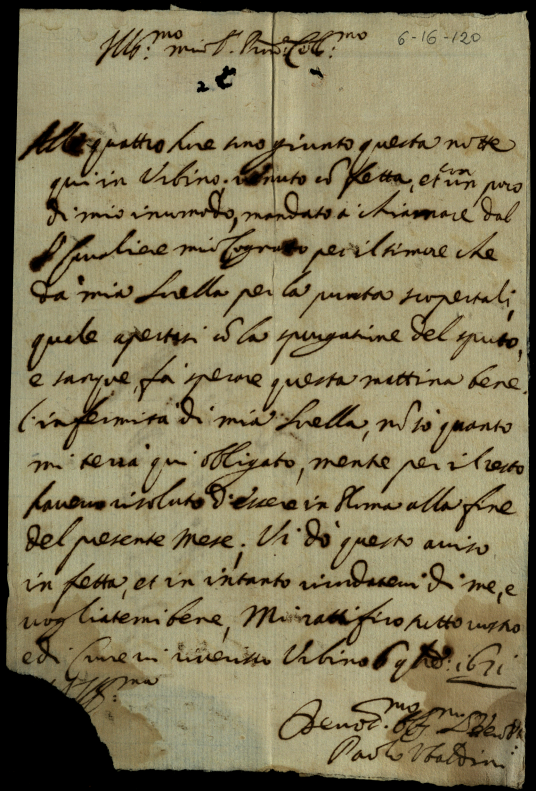 Ill.mo mio S.r Pron. Coll.mo
6-16-120
Alle quattro hore sono giunto questa notte
qui in Urbino, venuto cõ fretta, et con un poco
di mio incomodo, mandato à chiamare dal
S.r Cavaliere mio Cognato per il timore che
dà mia Sorella per la punta scopertali,
quale apertasi cõ la spurgatione del sputo,
e sangue, fà sperare questa mattina bene.
L'infermità di mia Sorella, nõ sò quanto
mi terrà qui obligato, mentre per il resto
havevo risoluto d'essere in Roma alla fine
del presente Mese; Vi dò questo aviso
in fretta, et in intanto ricordatevi di me, e
vogliatemi bene, Mi ratifico tutto vostro
e di Cuore vi riverisco Urbino 6 9bre: 1671
Devot.mo
Paolo Ubaldini